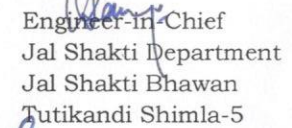 Engineer-in-Chief
Jal Shakti Department
Jal Shakti Bhawan
Tutikandi Shimla-5